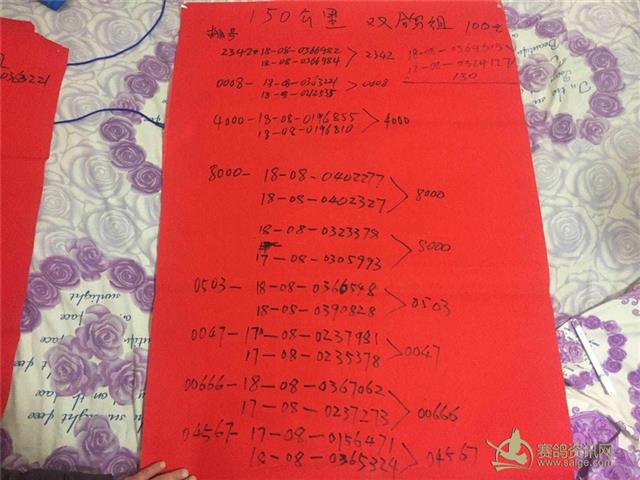 150公里 双鸽组 100元
棚号
2342 18-08-0366982
18-08-0366984 > 2342
0008- 18-08-0363221
18-08-0212535
4000- 18-08-0196855
18-08-0196810 > 4000
8000- 18-08-0402277
18-08-0402327 > 8000
18-08-0323378
17-08-0305993 > 8000
0503- 18-08-0366548
18-08-0390828 > 0503
0047- 17-08-0237981
17-08-0235378 > 0047
00666- 18-08-0367062
17-08-0237273 > 00666
04567- 17-08-0156471
18-08-0365324 > 04567
130
0363221
赛鸽资讯网
www.saige.com